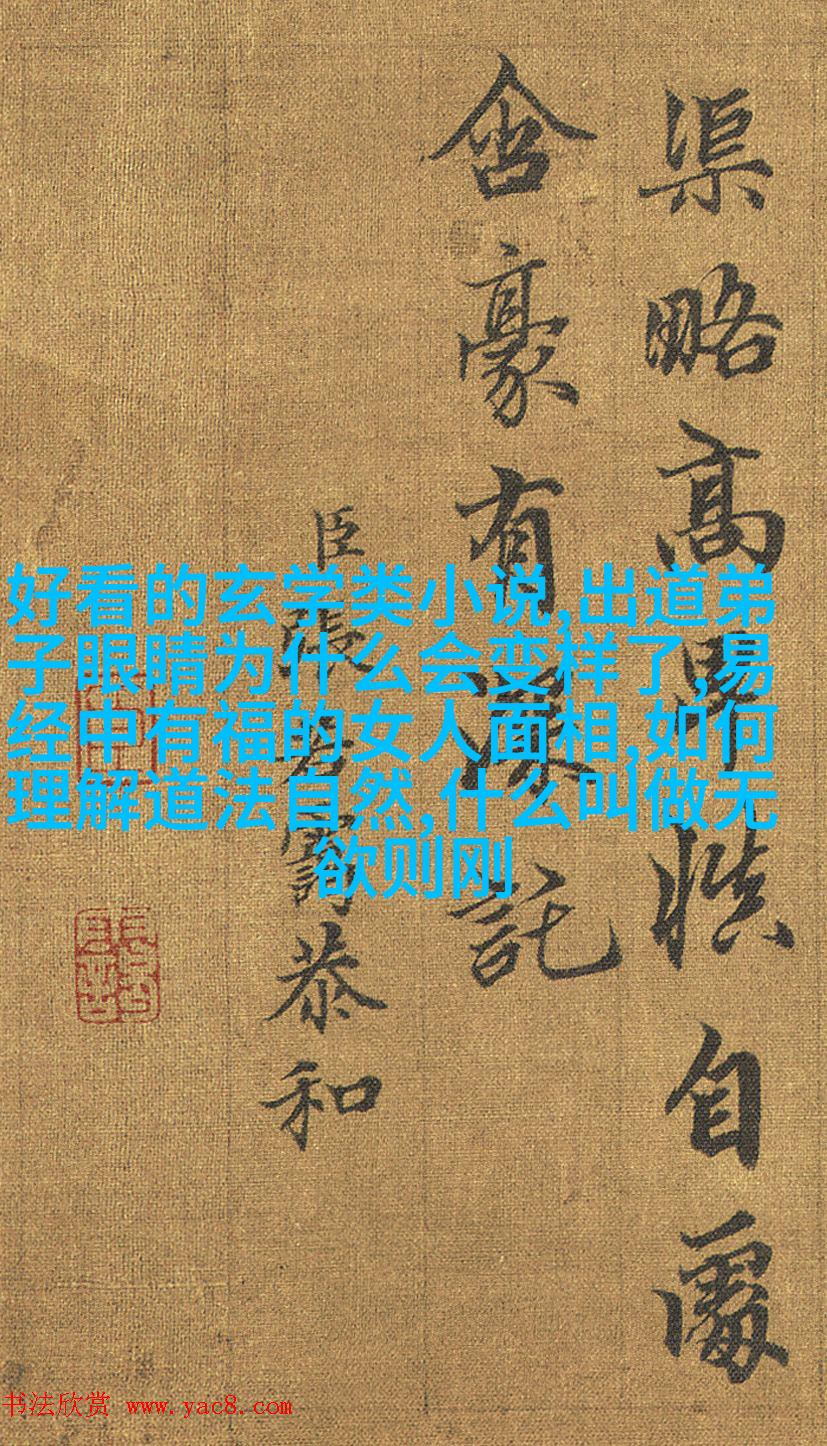 渠略高慎自處
含豪有深託
臣張若靄恭和
好看的玄学类小说,出道弟
子眼睛为什么会变样了,易
经中有福的女人面相,如何
理解道法自然,什么叫做无
欲则刚
书法欣赏 www.yac8.com